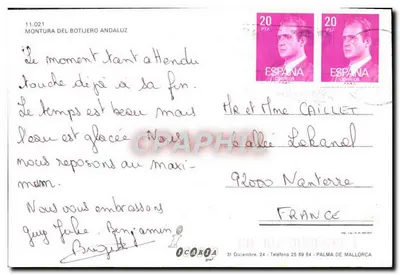 11.021
MONTURA DEL BOTIJERO ANDALUZ
Le moment tant attendu
touche déjà à sa fin.
Le temps est beau mais
l'eau est glacée. Nous
nous reposons au maxi-
mum.
Nous vous embrassons
Guy Julie. Benjamin
Brigitte
20 PTA
ESPAÑA
CORREOS
20 PTA
ESPAÑA
CORREOS
Mr et Mme CAILLET
allée Lakanal
92000 Nanterre
FRANCE
31 Diciembre, 24 - PALMA DE MALLORCA